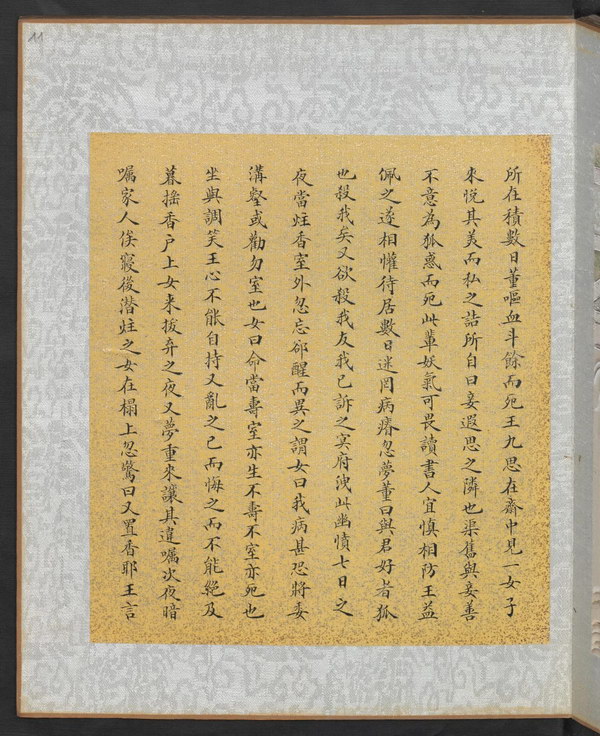 11
所在積數日董嘔血斗餘而死王九思在齋中見一女子
來悦其美而私之詰所自曰妾遐思之隣也渠舊與妾善
不意為狐惑而死此輩妖氣可畏讀書人宜慎相防王益
佩之遂相懽待居數日迷罔病瘠忽夢董曰與君好者狐
也殺我矣又欲殺我友我已訴之冥府洩此幽憤七日之
夜當炷香室外忽忘郤醒而異之謂女曰我病甚恐將委
溝壑或勸勿室也女曰命當壽室亦生不壽不室亦死也
坐與調笑王心不能自持又亂之已而悔之而不能絶及
暮插香户上女来拔弃之夜又夢重來讓其違囑次夜暗
囑家人俟寢後潜炷之女在榻上忽驚曰又置香耶王言